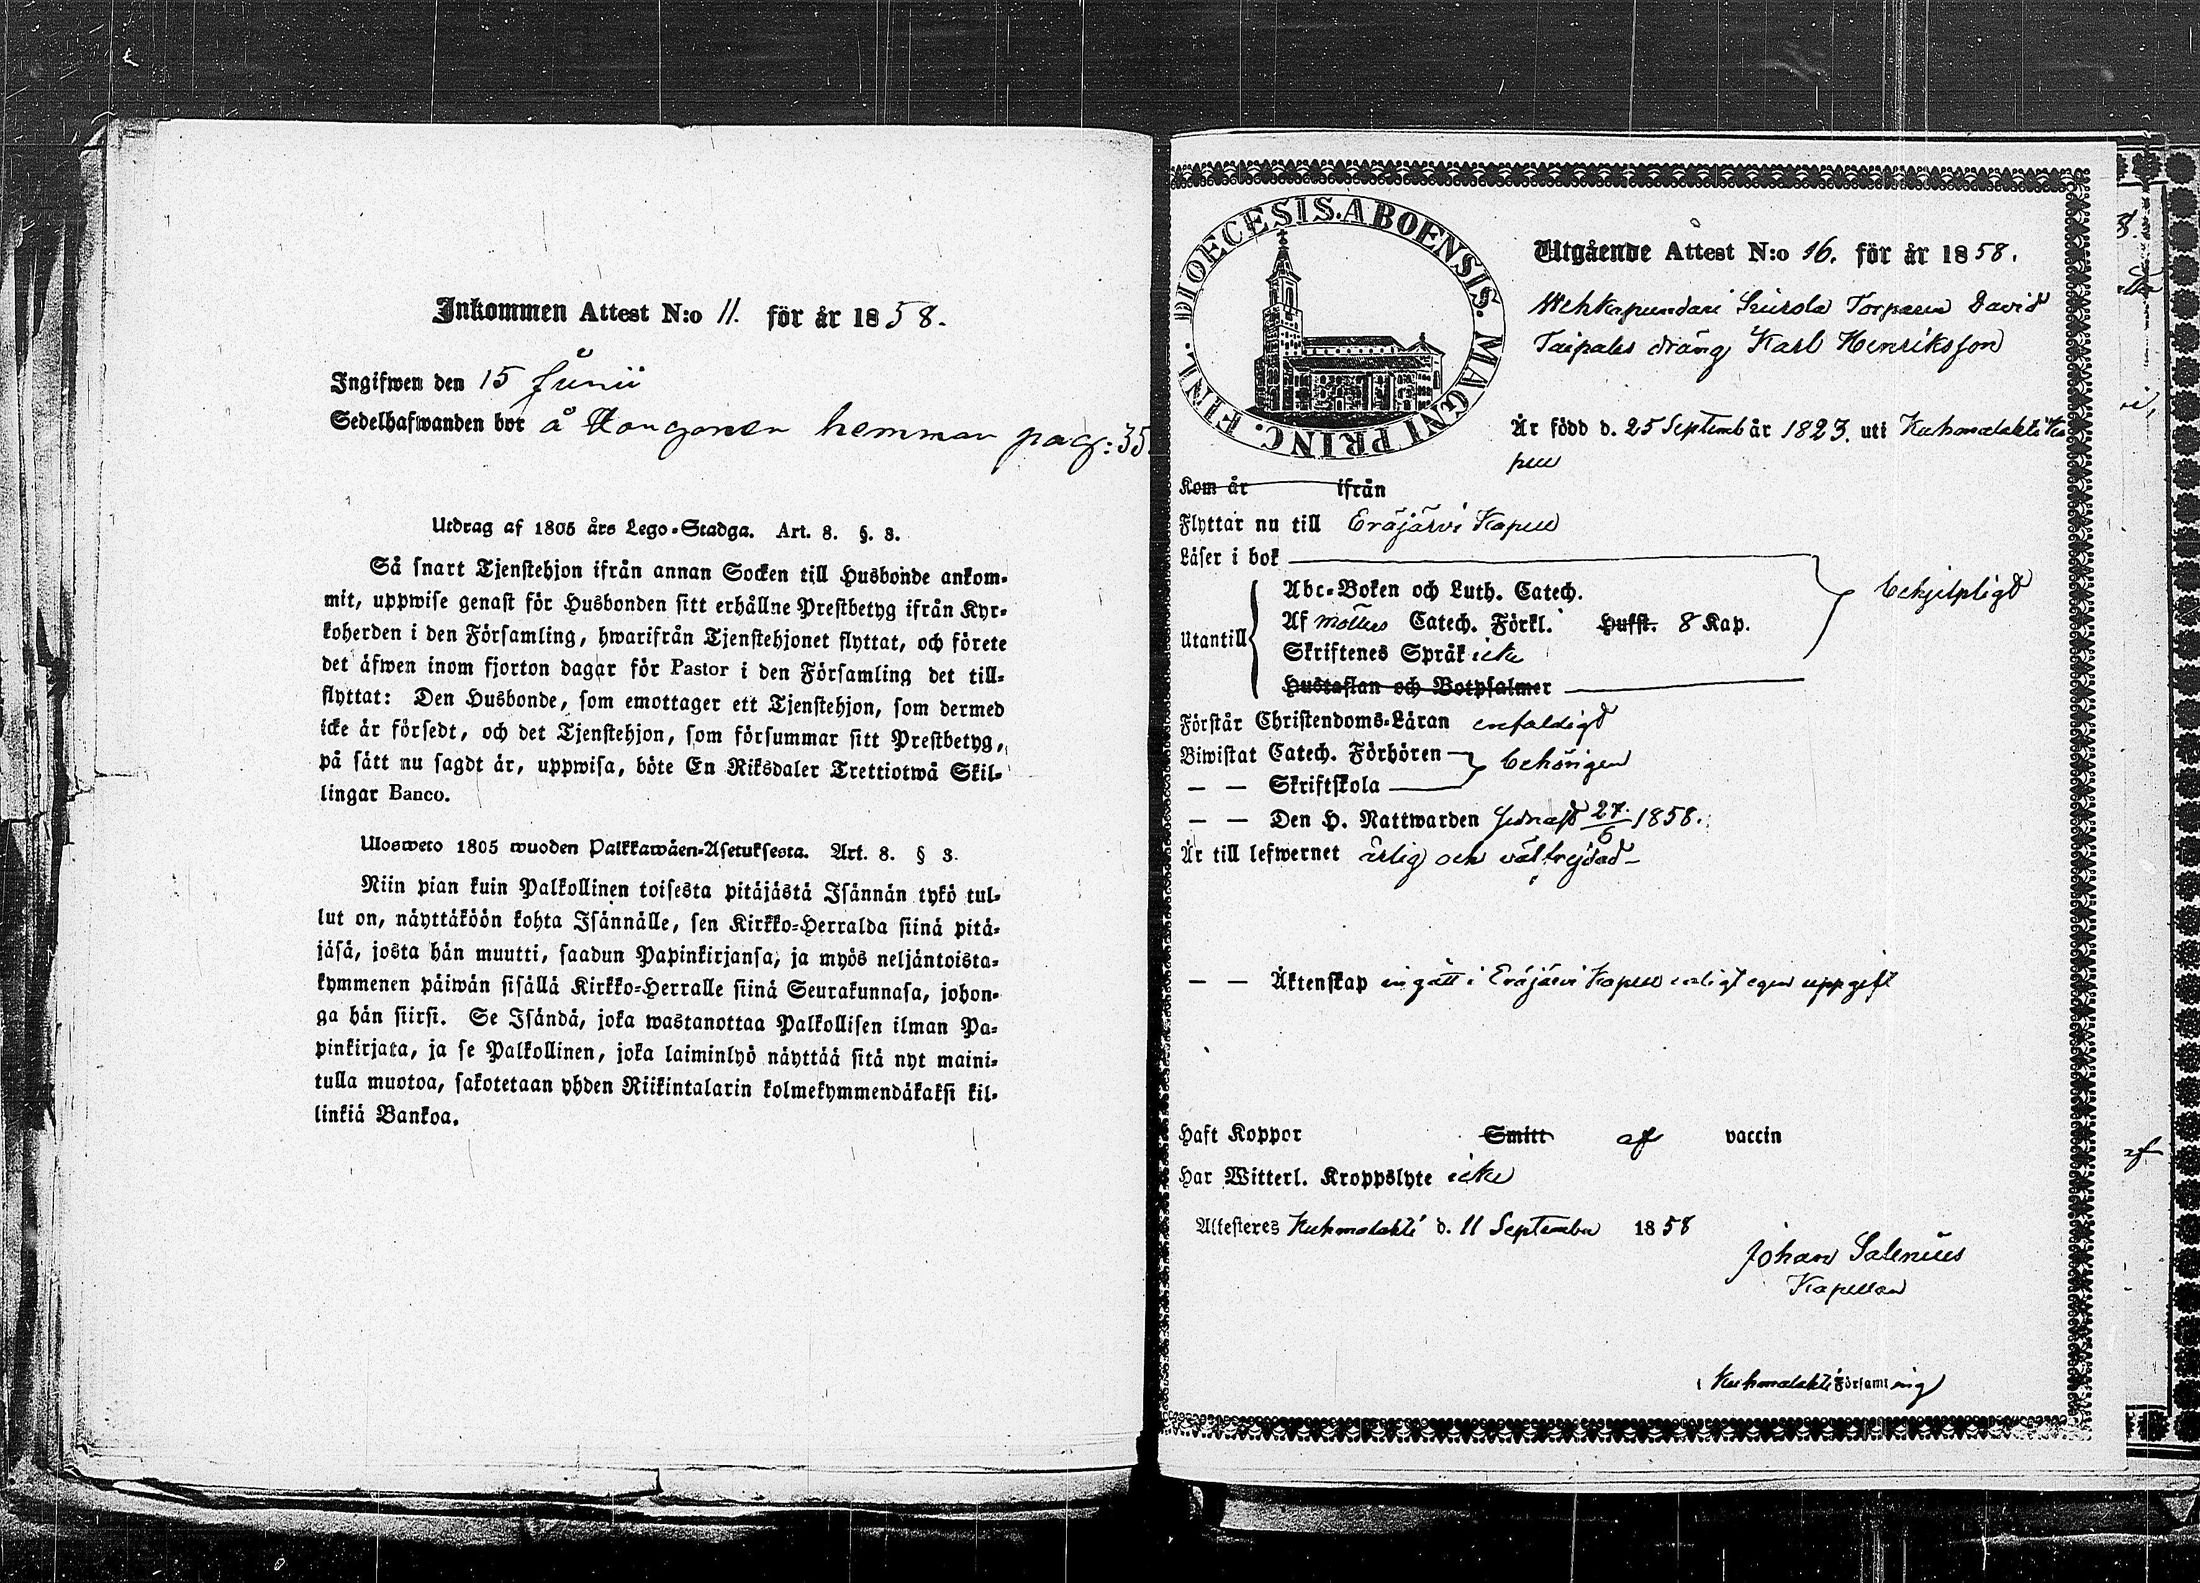 Inkommen Attest N:o 11. för år 1858.
Ingifwen den 15 Junii
Sedelhafwanden bor å hemman pag: 35.
Utdrag af 1805 års Lego-Stadga. Art. 8. §. 3.
Så snart Tjenstehjon ifrån annan Socken till Husbonde ankom-
mit, uppwise genast för Husbonden sitt erhållne Prestbetyg ifrån Kyr-
koherden i den Församling, hwarifrån Tjenstehjonet flyttat, och förete
det äfwen inom fjorton dagar för Pastor i den Församling det till-
flyttat: Den Husbonde, som emottager ett Tjenstehjon, som dermed
icke är försedt, och det Tjenstehjon, som försummar sitt Prestbetyg,
på sätt nu sagdt är, uppwisa, böte En Riksdaler Trettiotwå Skil-
lingar Banco.
Ulosweto 1805 wuoden Palkkawäen-Asetuksesta. Art. 8. § 3.
Niin pian kuin Palkollinen toisesta pitäjästä Isännän tykö tul-
lut on, näyttäköön kohta Isännälle, sen Kirkko-Herralda siinä pitä-
jäsä, josta hän muutti, saadun Papinkirjansa, ja myös neljäntoista-
kymmenen päiwän sisällä Kirkko-Herralle siinä Seurakunnasa, johon-
ga hän siirsi. Se Isändä, joka wastanottaa Palkollisen ilman Pa-
pinkirjata, ja se Palkollinen, joka laiminlyö näyttää sitä nyt maini-
tulla muotoa, sakotetaan yhden Riikintalarin kolmekymmendäkaksi kil-
linkiä Bankoa.
DIOECESIS.ABOENSIS. MAGNI PRINC. FINL.
Utgående Attest N:o 16. för år 1858.
Wehkapundari Torparen David
Taipales dräng Karl Henriksson
Är född d. 25 Septemb år 1823. uti Kuhmalakti Ka
pell
Kom år ifrån
Flyttar nu till Eräjärvi Kapell
Läser i bok
Abc-Boken och Luth. Catech. behjelpligt
Utantill Af Möllers Catech. Förkl. Hufst. 8 Kap.
Skriftenes Språk icke
Hustaflan och Botpsalmer
Förstår Christendoms-Läran enfaldigt
Biwistat Catech. Förhören behörigen
— — Skriftskola
— — Den H. Nattwarden sednast 27/6 1858.
Är till lefwernet ärlig och välfrejdad
— — Äktenskap ingått i Eräjärvi Kapell enligt egen uppgift
Haft Koppor Smitt af vaccin
Har Witterl. Kroppslyte icke
Attesteres Kuhmalakti d. 11 September 1858
Johan Salenius
Kapellan
i Kuhmalakti Församling